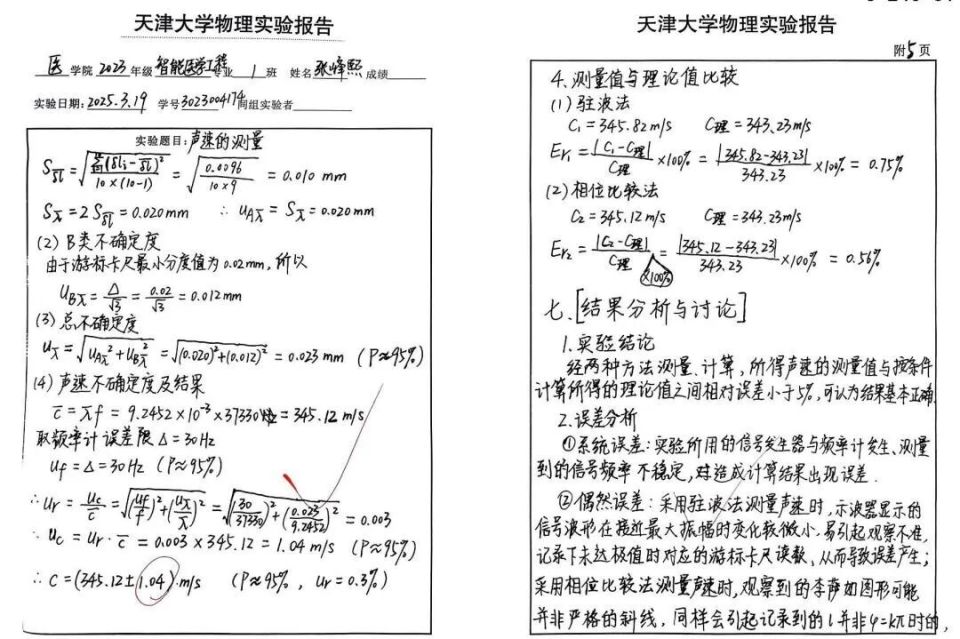 天津大学物理实验报告
医 学院 2023 年级 智能医学工程 专业 1 班 姓名 张峰熙 成绩
实验日期:2025.3.19 学号3023004174 同组实验者
实验题目:声速的测量
S_{\overline{δl}} = \sqrt{\frac{\sum(δl_i-\overline{δl})^2}{10×(10-1)}} = \sqrt{\frac{0.0096}{10×9}} = 0.010 mm
S_{\overline{λ}} = 2 S_{\overline{δl}} = 0.020mm ∴ u_{A\overline{λ}} = S_{\overline{λ}} = 0.020mm
(2) B类不确定度
由于游标卡尺最小分度值为0.02mm,所以
u_{B\overline{λ}} = \frac{Δ}{\sqrt{3}} = \frac{0.02}{\sqrt{3}} = 0.012mm
(3) 总不确定度
u_{\overline{λ}} = \sqrt{u_{A\overline{λ}}^2+u_{B\overline{λ}}^2} = \sqrt{(0.020)^2+(0.012)^2} = 0.023 mm (P≈95%)
(4) 声速不确定度及结果
\overline{c} = \overline{λ}f = 9.2452×10^{-3}×37330 = 345.12 m/s
取频率计误差限Δ=30Hz
u_f = Δ = 30Hz (P≈95%)
∴ u_r = \frac{u_c}{\overline{c}} = \sqrt{(\frac{u_f}{f})^2+(\frac{u_{\overline{λ}}}{\overline{λ}})^2} = \sqrt{(\frac{30}{37330})^2+(\frac{0.023}{9.2452})^2} = 0.003
∴ u_c = u_r·\overline{c} = 0.003×345.12 = 1.04 m/s (P≈95%)
∴ c = (345.12±1.04) m/s (P≈95%, u_r=0.3%)
天津大学物理实验报告
附5页
4.测量值与理论值比较
(1) 驻波法
C₁=345.82m/s C理=343.23m/s
Er₁ = \frac{|C₁-C理|}{C理}×100% = \frac{|345.82-343.23|}{343.23}×100% = 0.75%
(2) 相位比较法
C₂=345.12m/s C理=343.23m/s
Er₂ = \frac{|C₂-C理|}{C理}×100% = \frac{|345.12-343.23|}{343.23}×100% = 0.56%
七、[结果分析与讨论]
1.实验结论
经两种方法测量、计算,所得声速的测量值与按条件
计算所得的理论值之间相对误差小于5%,可认为结果基本正确.
2.误差分析
①系统误差:实验所用的信号发生器与频率计发生、测量
到的信号频率不稳定,造成计算结果出现误差.
②偶然误差:采用驻波法测量声速时,示波器显示的
信号波形在接近最大振幅时变化较微小,易引起观察不准,
记录下未达极值时对应的游标卡尺读数,从而导致误差产生;
采用相位比较法测量声速时,观察到的李萨如图形可能
并非严格的斜线,同样会引起记录到的l并非φ=kπ时的,